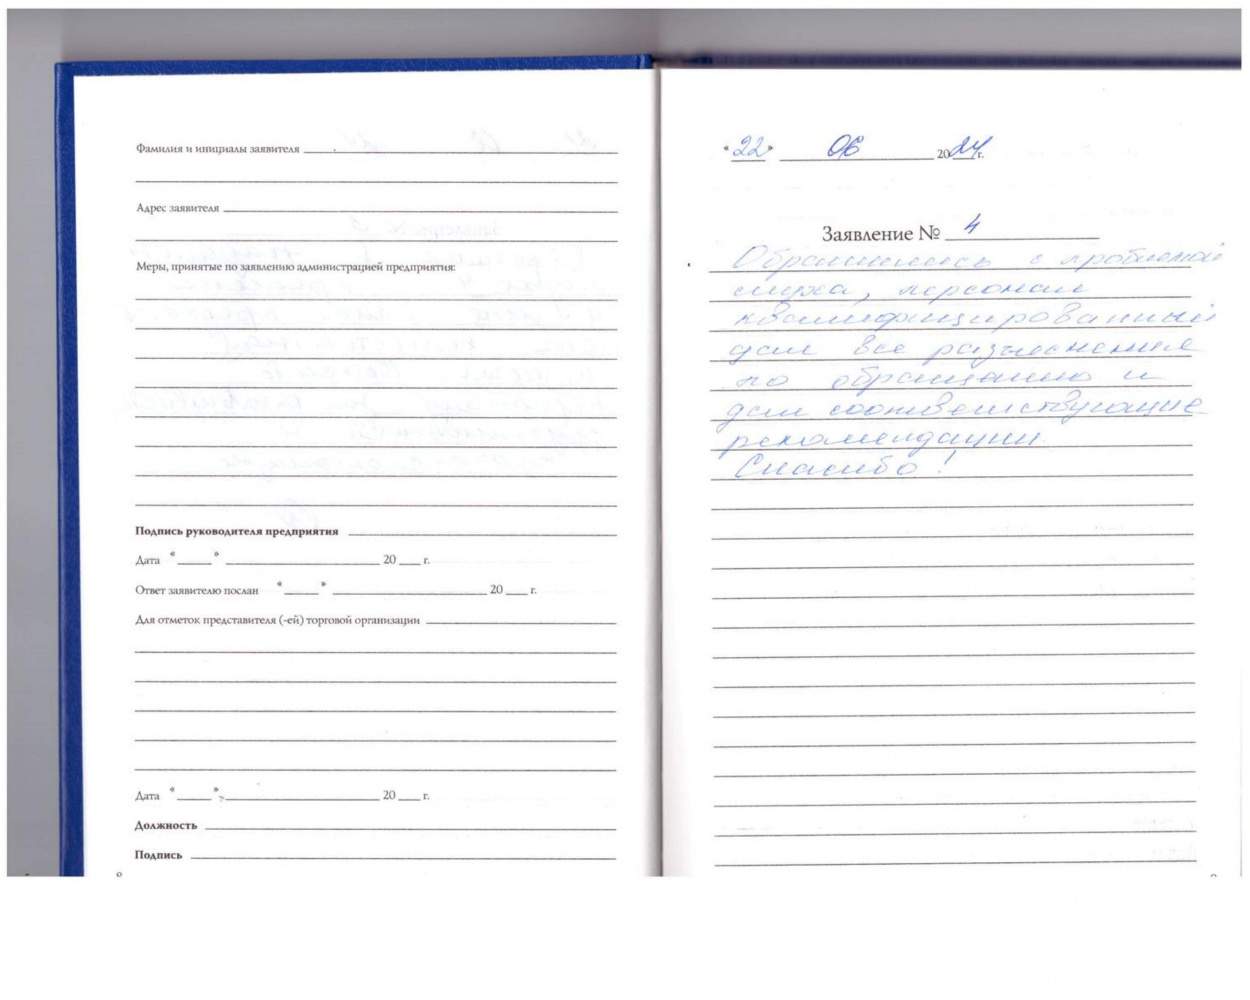 Фамилия и инициалы заявителя
Адрес заявителя
Меры, принятые по заявлению администрацией предприятия:
Подпись руководителя предприятия
Дата « » 20 г.
Ответ заявителю послан « » 20 г.
Для отметок представителя (-ей) торговой организации
Дата « » 20 г.
Должность
Подпись
«22» 06 2024 г.
Заявление № 4
Обратились с проблемой
слуха, персонал
квалифицированный
дал все разъяснения
по обращению и
дал соответствующие
рекомендации.
Спасибо!